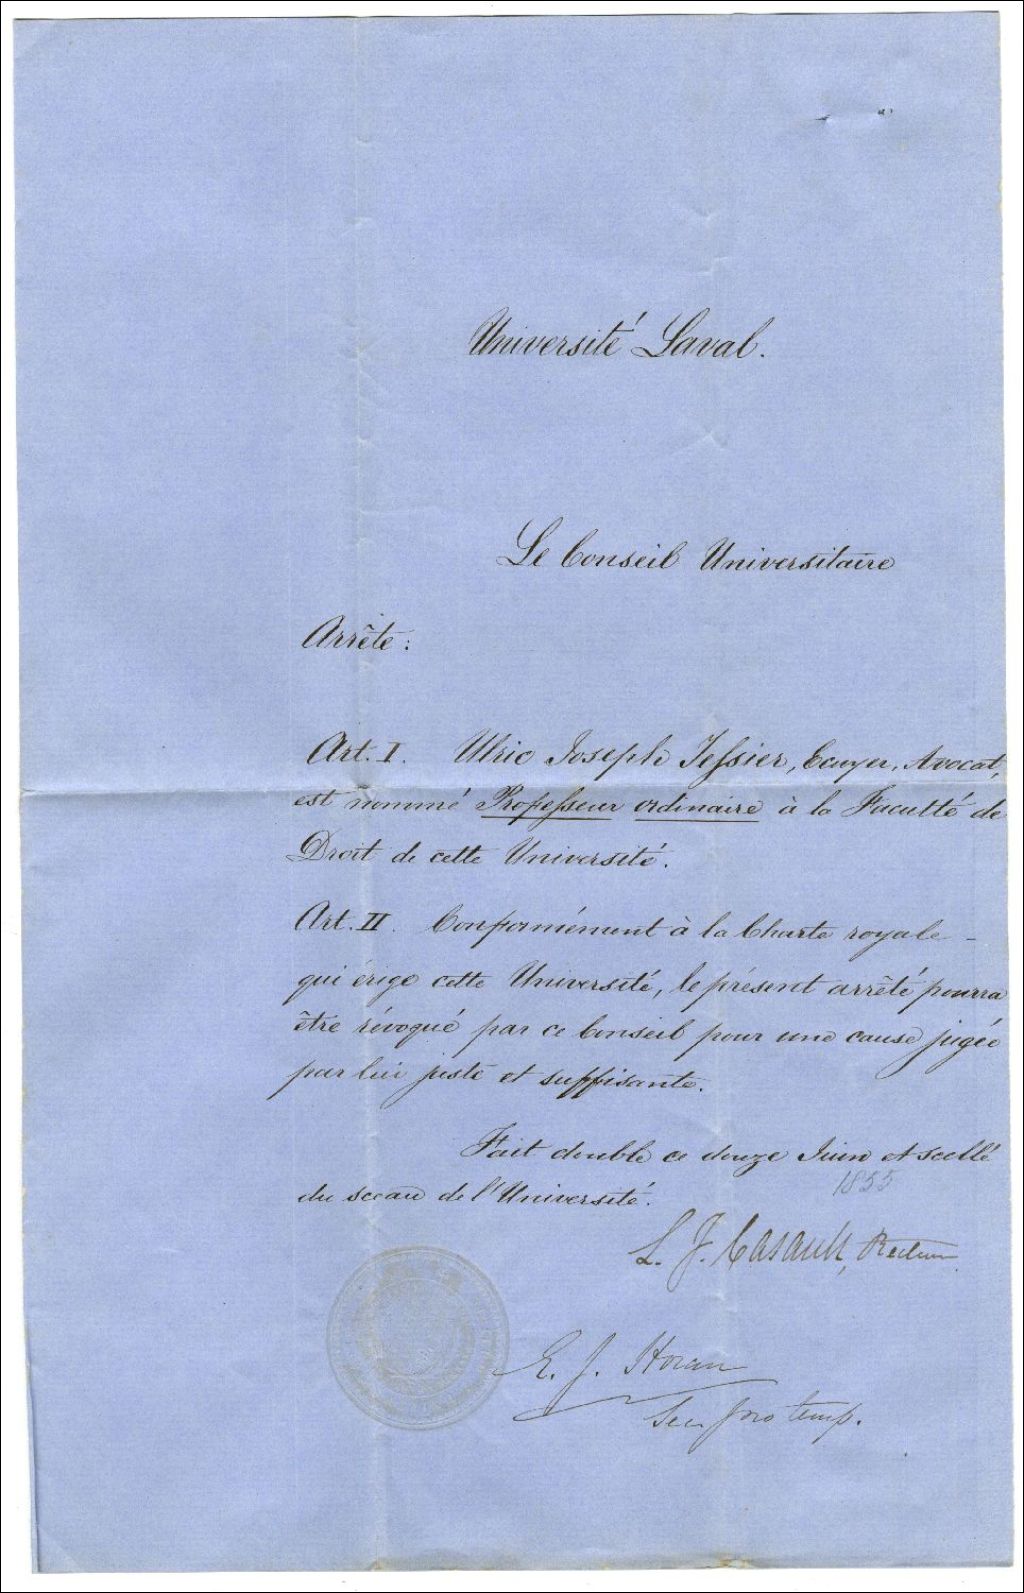 Université Laval.
Le Conseil Universitaire
Arrête:
Art. I. Ulric Joseph Tessier, Ecuyer, Avocat,
est nommé Professeur ordinaire à la Faculté de
Droit de cette Université.
Art. II. Conformément à la Charte royale
qui érige cette Université, le présent arrêté pourra
être révoqué par ce Conseil pour une cause jugée
par lui juste et suffisante.
Fait double ce douze Juin et scellé
1855
du sceau de l'Université.
L. J. Casault, Recteur
E. J. Horan
Sec. pro temp.